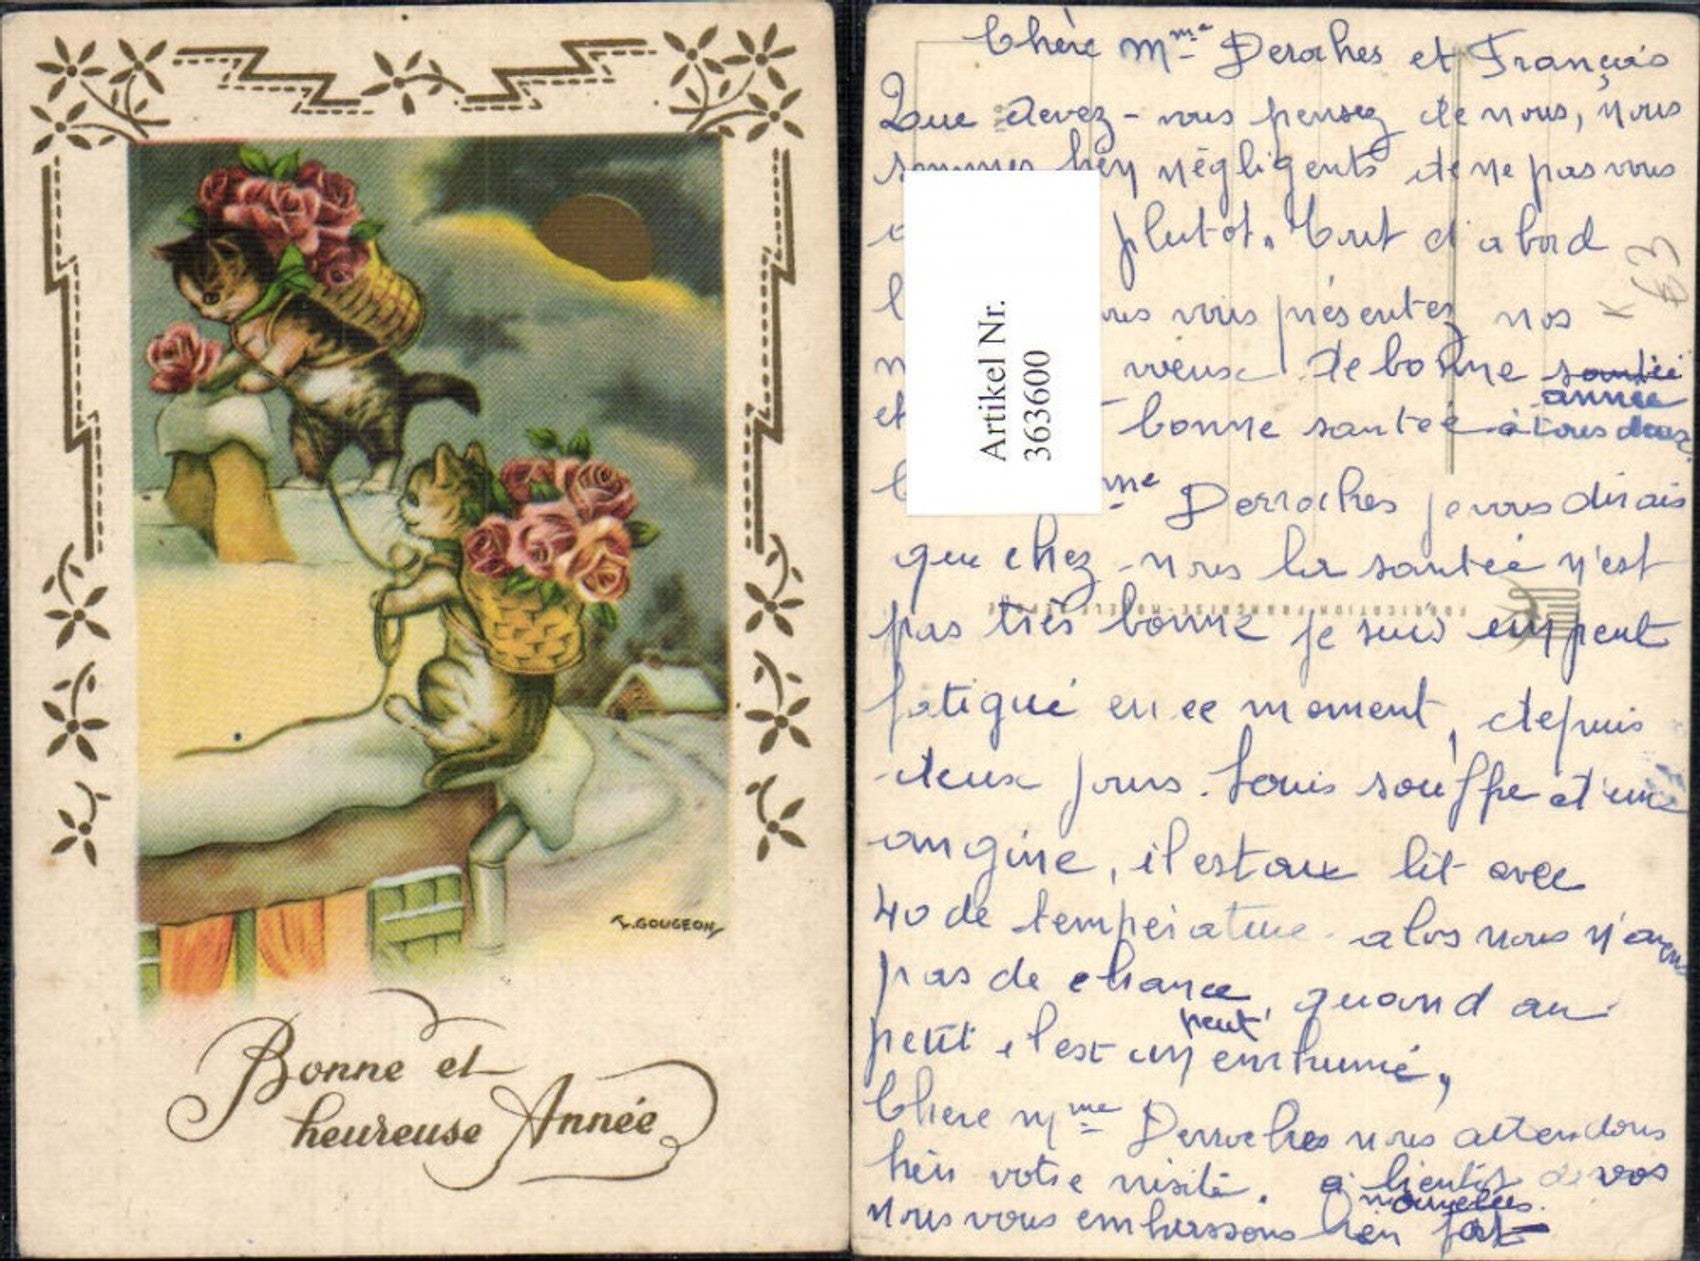 R. GOUGEON
Bonne et
heureuse Année
Artikel Nr.
363600
Chère Mme Deroches et François
Que devez-vous pensez de nous, nous
sommes bien négligents de ne pas vous
plutot. Tout d'abord
vous présentez nos
K 63
vœux de bonne santée
année
et bonne santée à tous deux.
Mme Derroches je vous dirais
que chez-nous la santée n'est
FABRICATION FRANÇAISE - MODÈLE DÉPOSÉ
pas très bonne je suis un peut
fatigué en ce moment, depuis
deux jours. Louis souffre d'une
angine, il est au lit avec
40 de température. alos nous n'avons
pas de chance, quand au
petit il est un peut enrhumé,
Chere Mme Derroches nous attendons
bien votre visite. a bientôt de vos
nouvelles.
nous vous embrassons bien fort